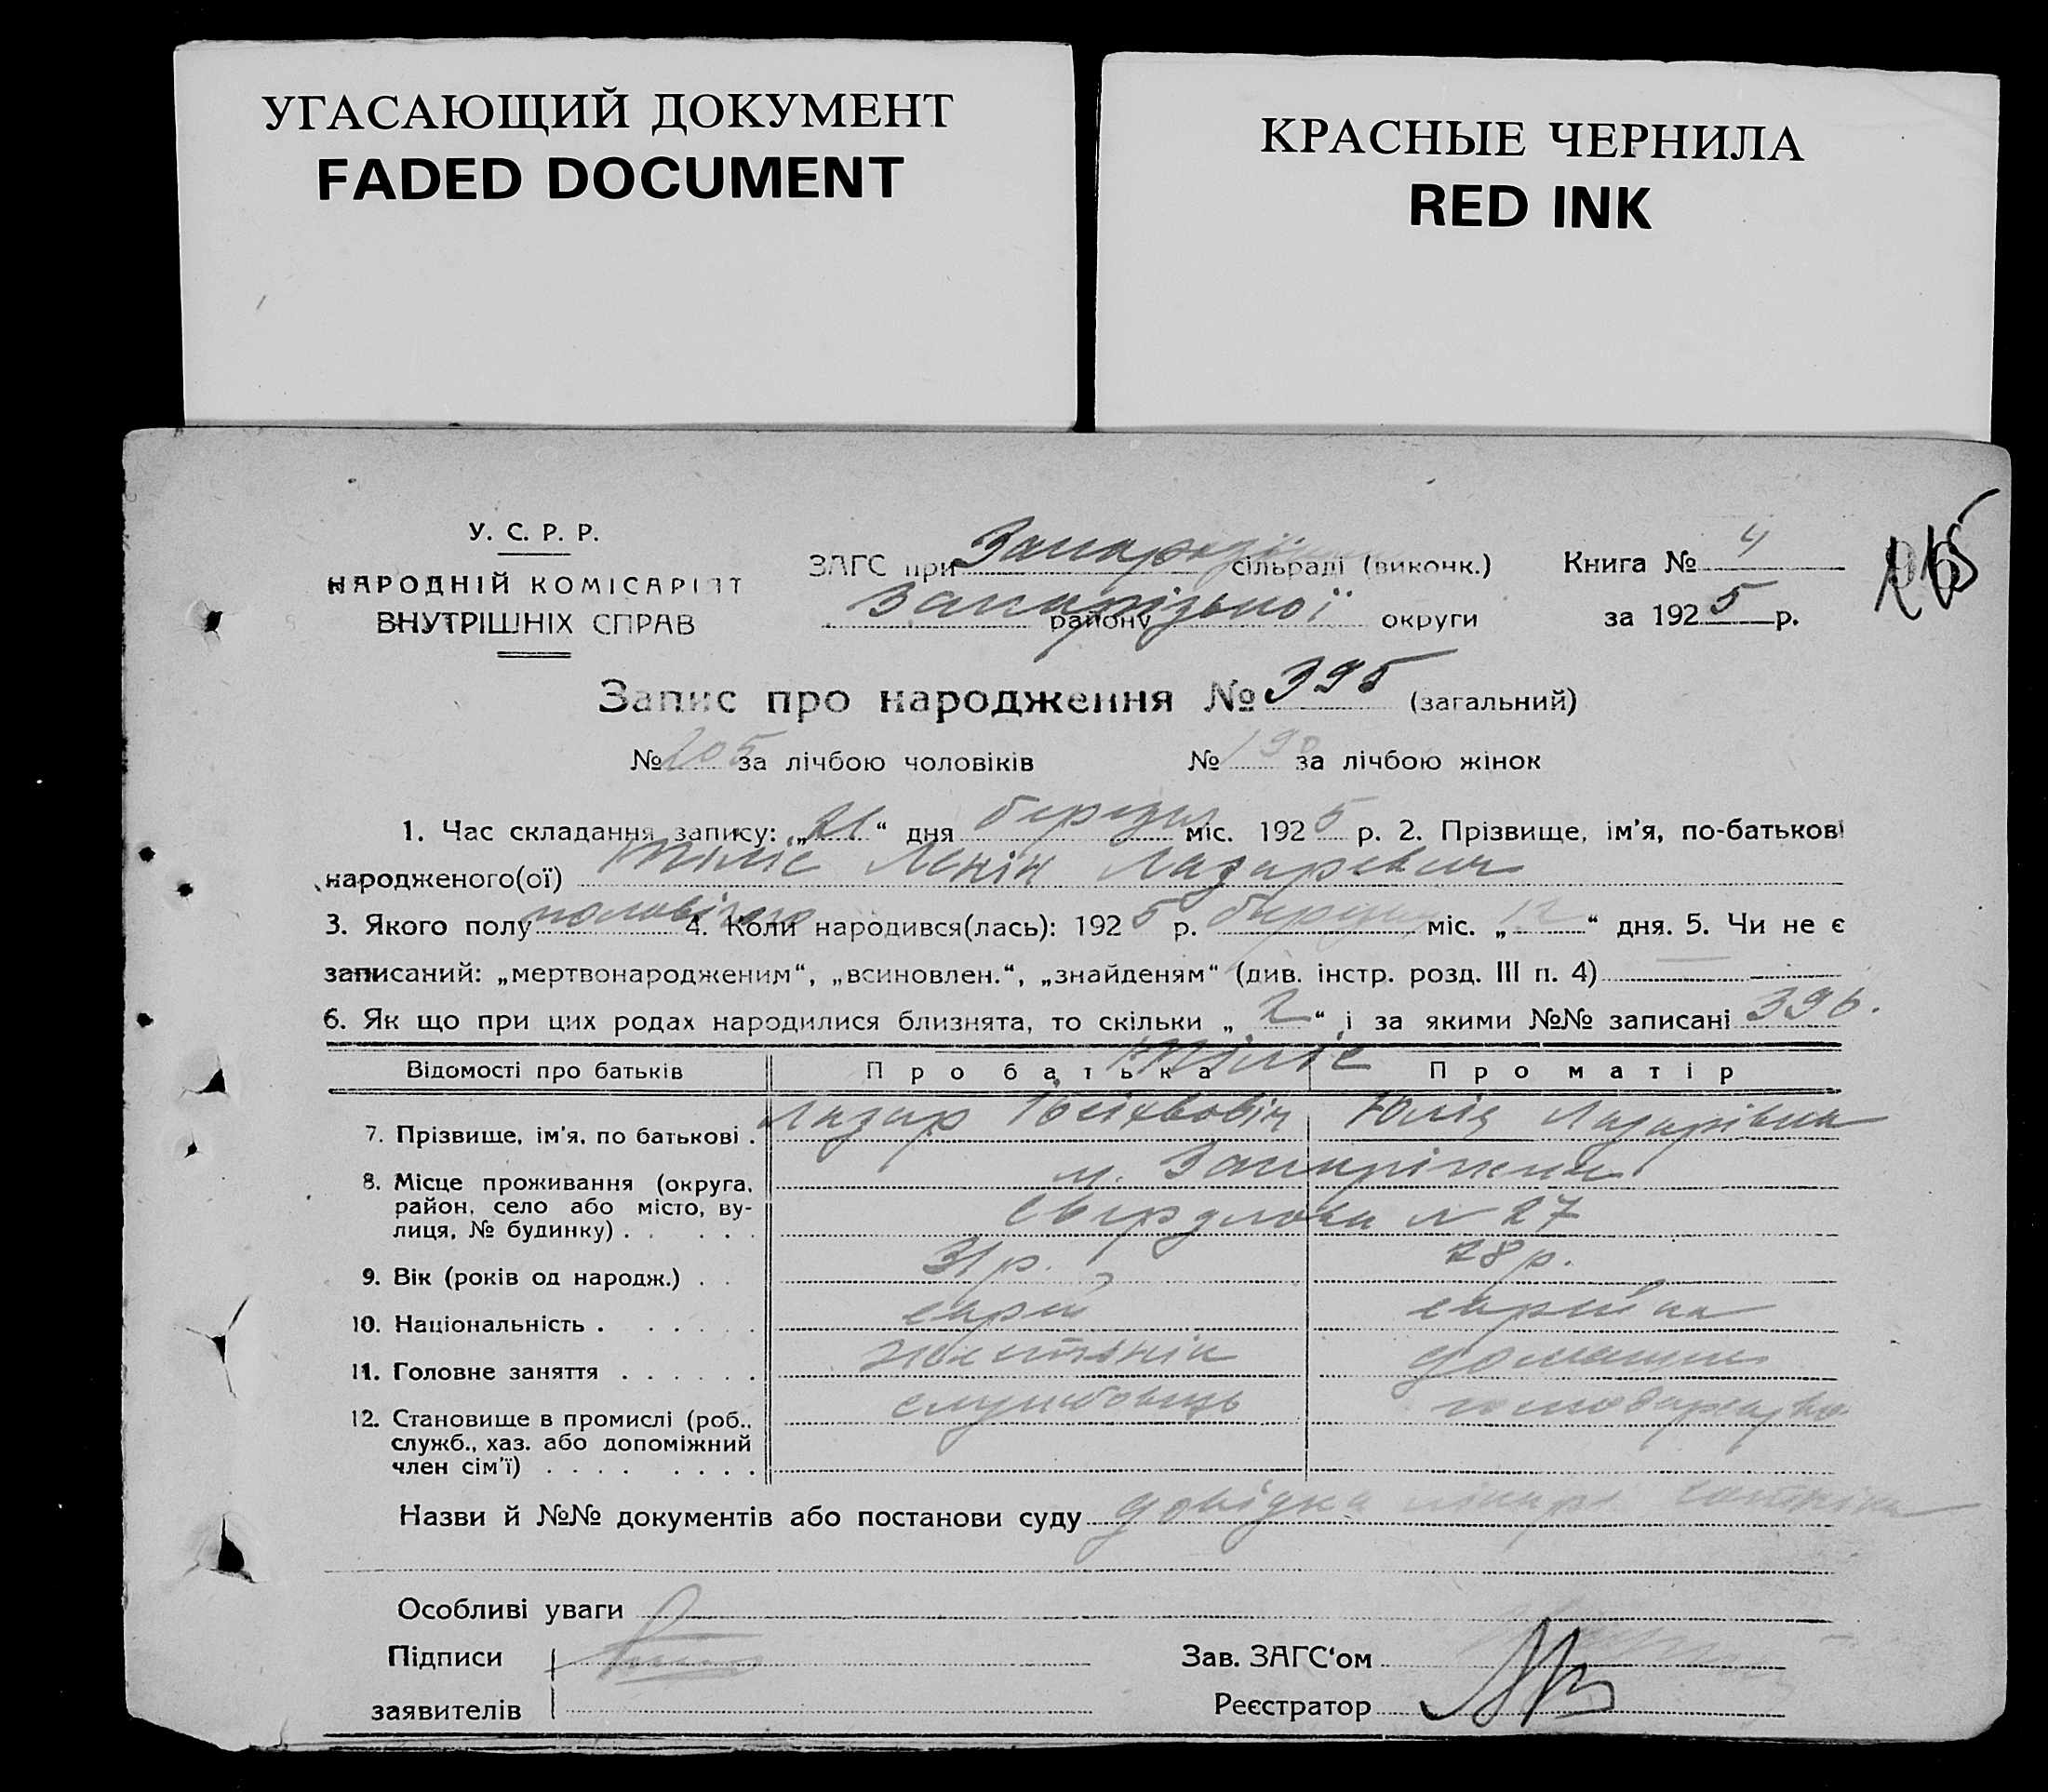 УГАСАЮЩИЙ ДОКУМЕНТ
FADED DOCUMENT
КРАСНЫЕ ЧЕРНИЛА
RED INK
У. С. Р. Р.
НАРОДНІЙ КОМІСАРІЯТ
ВНУТРІШНІХ СПРАВ
ЗАГС при сільраді (виконк.)
району Запорізької округи
Книга № 4
за 1925 р.
Запис про народження № 395 (загальний)
№ 205 за лічбою чоловіків № 190 за лічбою жінок
1. Час складання запису: „21“ дня березня міс. 1925 р. 2. Прізвище, ім’я, по-батькові
народженого(ої) Ленін Лазаревич
3. Якого полу чоловічого 4. Коли народився(лась): 1925 р. березня міс. „12“ дня. 5. Чи не є
записаний: „мертвонародженим“, „всиновлен.“, „знайденям“ (див. інстр. розд. III п. 4)
6. Як що при цих родах народилися близнята, то скільки „2“ і за якими №№ записані 396.
Відомості про батьків Про батька Про матір
7. Прізвище, ім’я, по батькові . Лазар Юлія Лазарівна
8. Місце проживання (округа, район, село або місто, вулиця, № будинку) . м. Запоріжжя
Свердлова № 27
9. Вік (років од народж.) . . 31 р. 28 р.
10. Національність . еврей еврейка
11. Головне заняття домашнє
12. Становище в промислі (роб., служб., хаз. або допоміжний член сім’ї) службовець господарство
Назви й №№ документів або постанови суду довідка
Особливі уваги
Підписи
заявителів
Зав. ЗАГС‘ом
Реєстратор